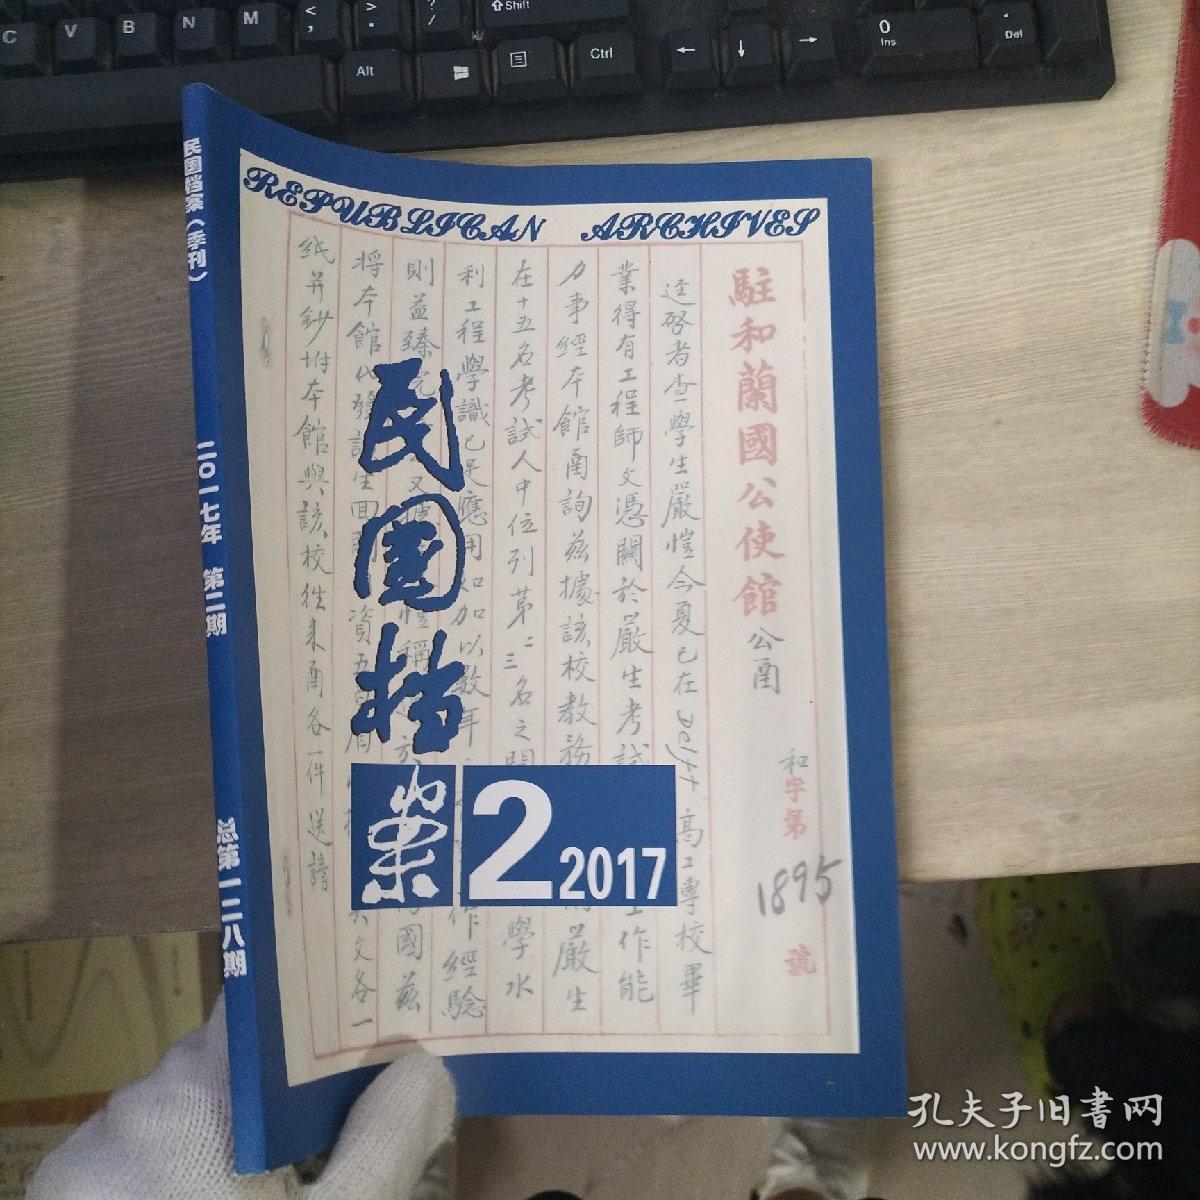 REPUBLICAN ARCHIVES
駐和蘭國公使館公函
和字第1895號
逕啓者查學生嚴愷今夏已在Delft高工專校畢
業得有工程師文憑關於嚴生考試
工作能
力事經本館函詢茲據該校教務
嚴生
在十五名考試人中位列第二三名之間
學水
利工程學識已足應用如加以數年
工作經驗
則益臻完
又據
愷稱
國茲
將本館代發該生回國
資五
文各一
紙并鈔附本館與該校往來函各一件送請
民国档案
2 2017
民国档案(季刊) 二〇一七年 第二期 总第一二八期
C V B N M < , > . ? / Shift
Alt Ctrl ← ↓ → 0 Ins . Del
孔夫子旧書网
www.kongfz.com